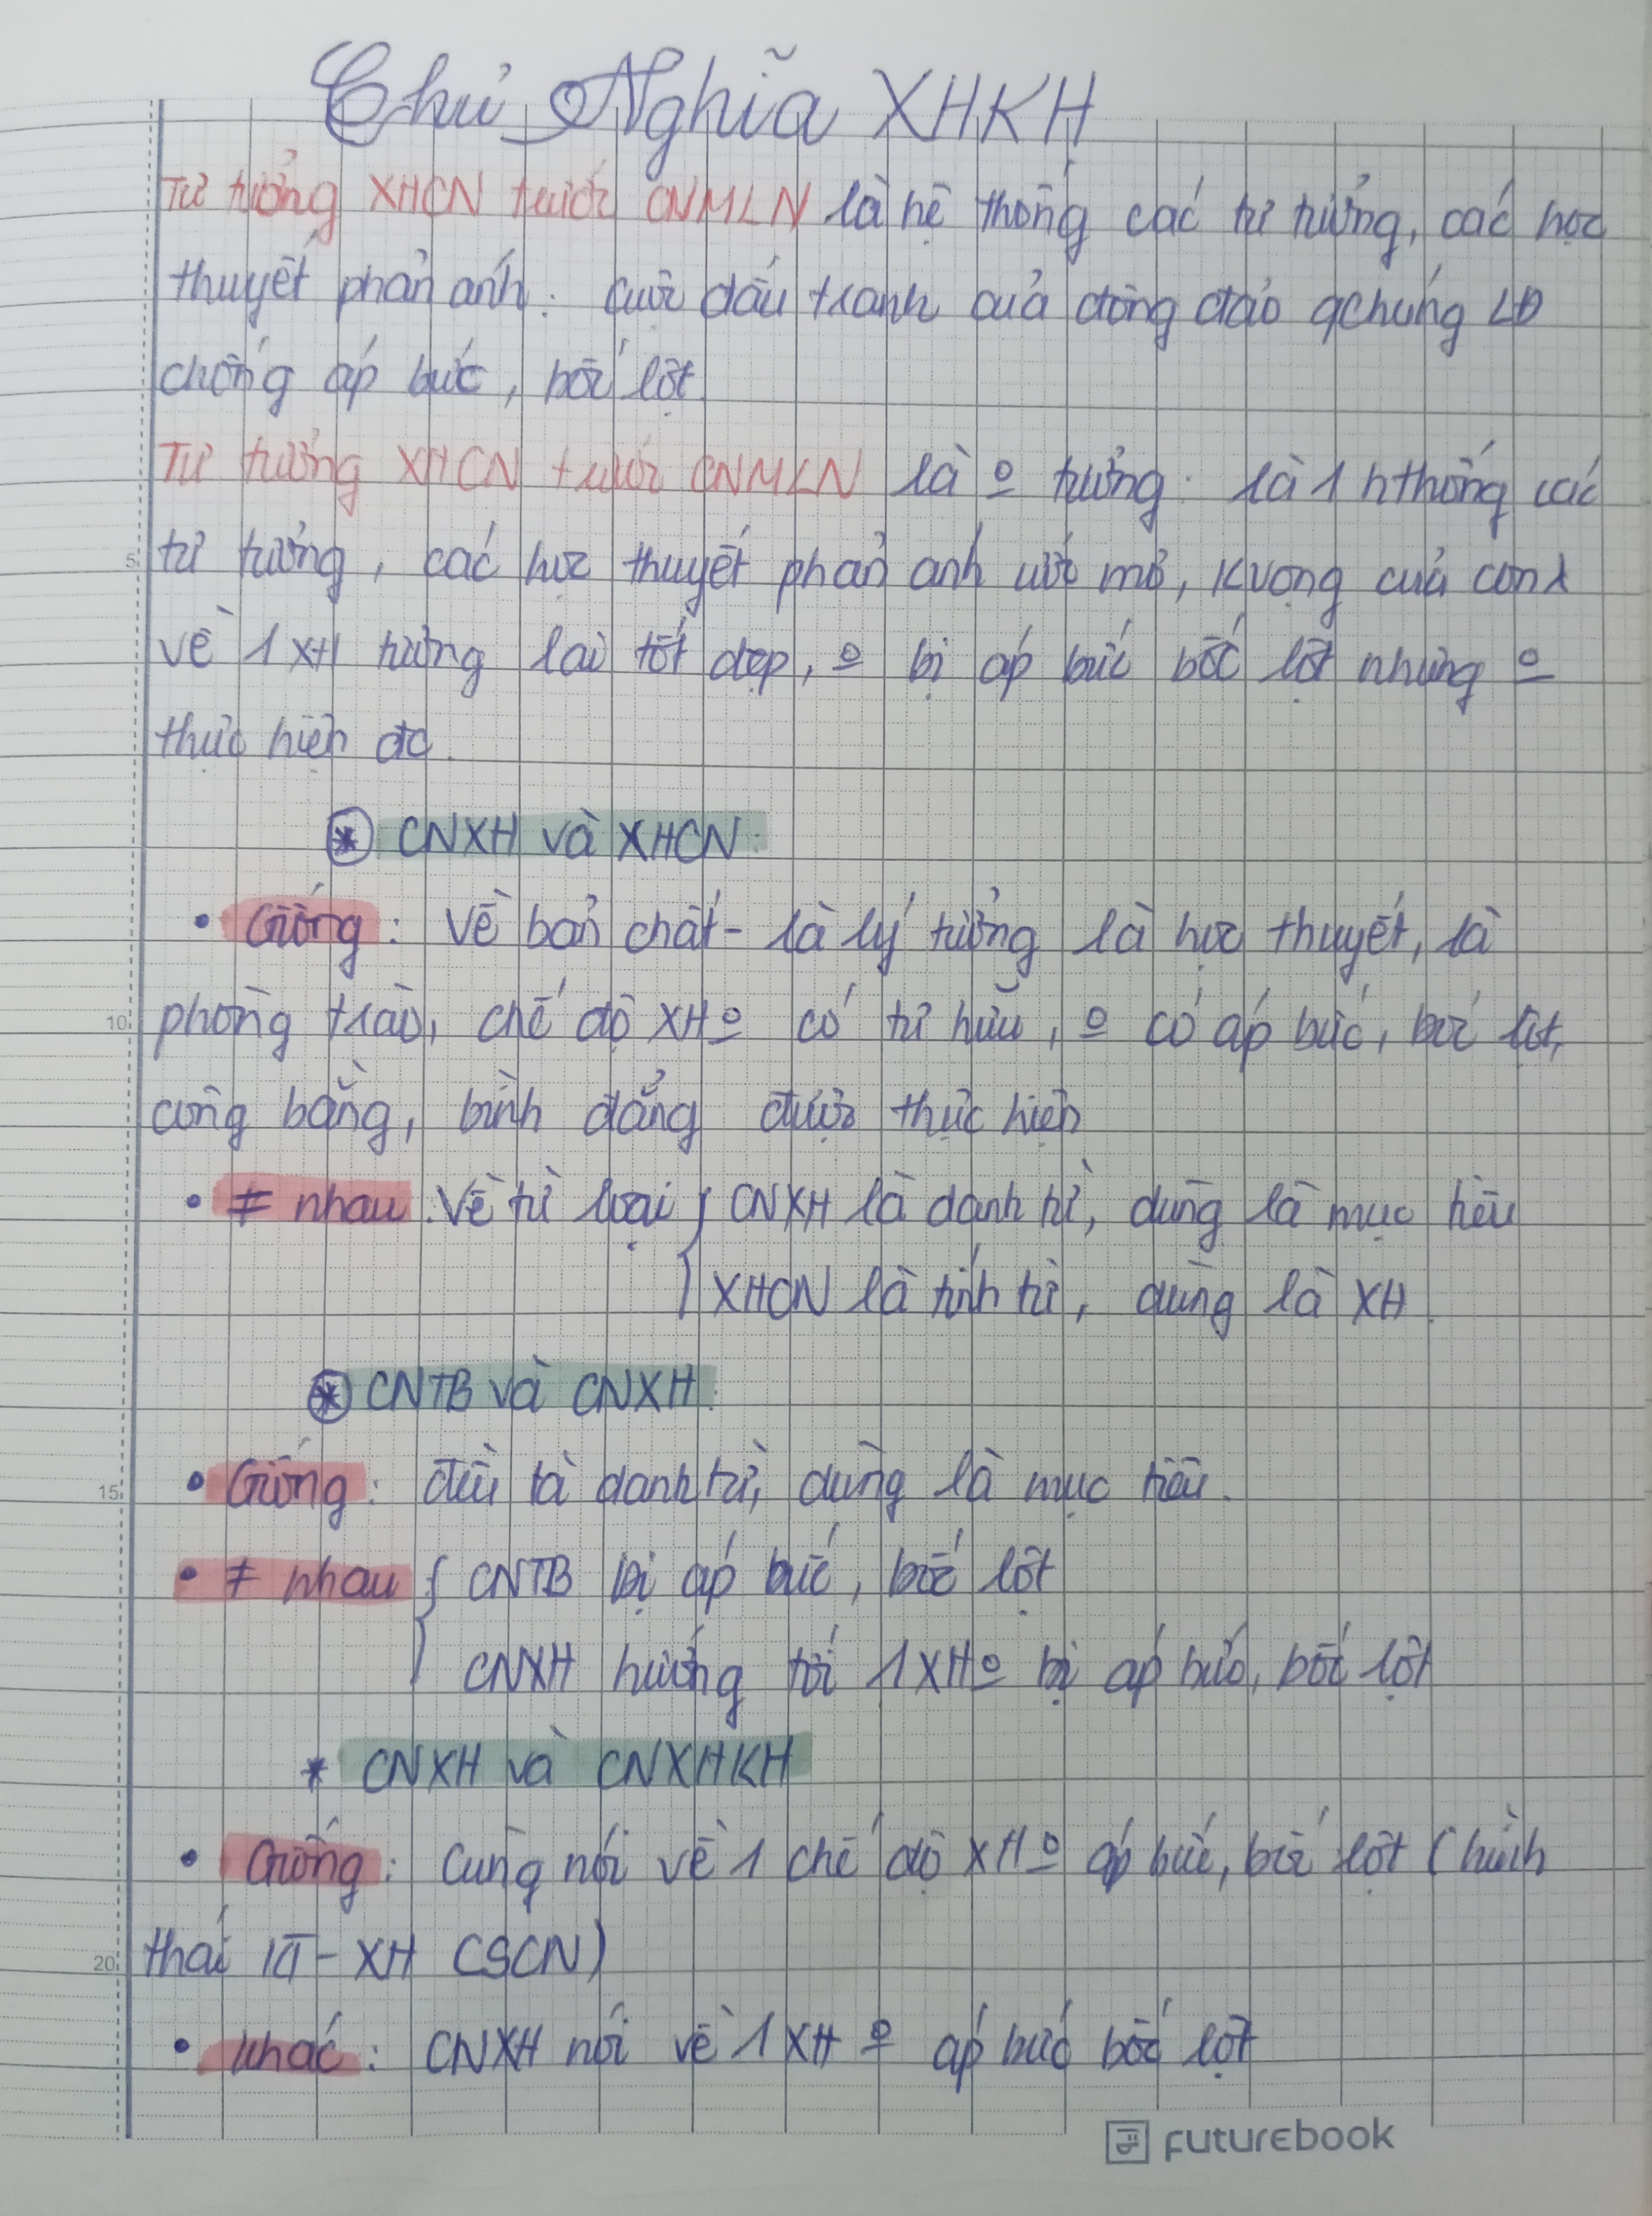 Chủ Nghĩa XHKH
Tư tưởng XHCN trước CNMLN là hệ thống các tư tưởng, các học
thuyết phản ánh: cuộc đấu tranh của đông đảo qchúng LĐ
chống áp bức, bóc lột.
Tư tưởng XHCN trước CNMLN là o tưởng: là 1 hthống các
tư tưởng, các học thuyết phản ánh ước mơ, kvọng của con
về 1 XH tương lai tốt đẹp, o bị áp bức bóc lột nhưng o
thực hiện đc.
* CNXH và XHCN:
• Giống: Về bản chất - là lý tưởng là học thuyết, là
phong trào, chế độ XH o có tư hữu, o có áp bức, bóc lột,
công bằng, bình đẳng được thực hiện
• ≠ nhau. Về từ loại { CNXH là danh từ, dùng là mục tiêu
XHCN là tính từ, dùng là XH.
* CNTB và CNXH:
• Giống: đều là danh từ, dùng là mục tiêu.
• ≠ nhau { CNTB bị áp bức, bóc lột
CNXH hướng tới 1 XH o bị áp bức, bóc lột
* CNXH và CNXHKH
• Giống: Cùng nói về 1 chế độ XH o áp bức, bóc lột (hình
thái KT - XH CSCN)
• khác: CNXH nói về 1 XH o áp bức bóc lột
5
10
15
20
futurebook